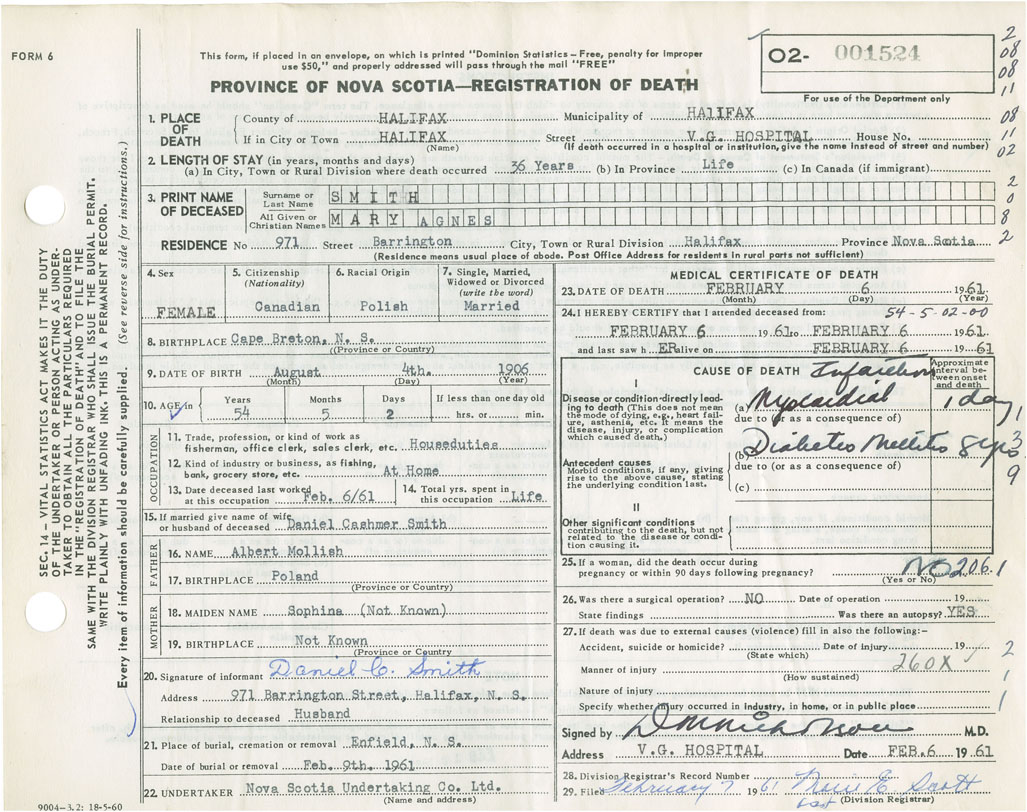 FORM 6
This form, if placed in an envelope, on which is printed "Dominion Statistics – Free, penalty for improper
use $50," and properly addressed will pass through the mail "FREE"
PROVINCE OF NOVA SCOTIA—REGISTRATION OF DEATH
O2- 001524
For use of the Department only
2
08
08
11
08
11
02
2
0
8
2
1. PLACE OF DEATH
County of HALIFAX Municipality of HALIFAX
If in City or Town HALIFAX Street V.G. HOSPITAL House No.
(Name) (If death occurred in a hospital or institution, give the name instead of street and number)
2. LENGTH OF STAY (in years, months and days)
(a) In City, Town or Rural Division where death occurred 36 Years (b) In Province Life (c) In Canada (if immigrant)
3. PRINT NAME OF DECEASED
Surname or Last Name SMITH
All Given or Christian Names MARY AGNES
RESIDENCE No 971 Street Barrington City, Town or Rural Division Halifax Province Nova Scotia
(Residence means usual place of abode. Post Office Address for residents in rural parts not sufficient)
4. Sex
FEMALE
5. Citizenship
(Nationality)
Canadian
6. Racial Origin
Polish
7. Single, Married,
Widowed or Divorced
(write the word)
Married
8. BIRTHPLACE Cape Breton, N. S.
((Province or Country)
9. DATE OF BIRTH August 4th. 1906
(Month) (Day) (Year)
10. AGE in
Years Months Days If less than one day old
54 5 2 hrs. or min.
OCCUPATION
11. Trade, profession, or kind of work as
fisherman, office clerk, sales clerk, etc. Houseduties
12. Kind of industry or business, as fishing,
bank, grocery store, etc. At Home
13. Date deceased last worked
at this occupation Feb. 6/61
14. Total yrs. spent in
this occupation Life
15. If married give name of wife
or husband of deceased Daniel Cashmer Smith
FATHER
16. NAME Albert Mollish
17. BIRTHPLACE Poland
(Province or Country)
MOTHER
18. MAIDEN NAME Sophina (Not Known)
19. BIRTHPLACE Not Known
(Province or Country
20. Signature of informant Daniel C. Smith
Address 971 Barrington Street, Halifax, N. S.
Relationship to deceased Husband
21. Place of burial, cremation or removal Enfield, N. S.
Date of burial or removal Feb. 9th. 1961
22. UNDERTAKER Nova Scotia Undertaking Co. Ltd.
(Name and address)
MEDICAL CERTIFICATE OF DEATH
23. DATE OF DEATH FEBRUARY 6 1961
(Month) (Day) (Year)
24. I HEREBY CERTIFY that I attended deceased from: 54-5-02-00
FEBRUARY 6 1961 to FEBRUARY 6 1961
and last saw h ER alive on FEBRUARY 6 1961
CAUSE OF DEATH Infarction
Approximate interval between onset and death
I
Disease or condition directly lead-
ing to death (This does not mean
the mode of dying, e.g., heart fail-
ure, asthenia, etc. It means the
disease, injury, or complication
which caused death.)
(a) Myocardial 1 day
due to (or as a consequence of)
(b) Diabetes Mellitis 8 yrs
due to (or as a consequence of)
(c)
Antecedent causes
Morbid conditions, if any, giving
rise to the above cause, stating
the underlying condition last.
1
3
9
II
Other significant conditions
contributing to the death, but not
related to the disease or condi-
tion causing it.
25. If a woman, did the death occur during
pregnancy or within 90 days following pregnancy? NO 2061
(Yes or No)
26. Was there a surgical operation? NO Date of operation 19
State findings Was there an autopsy? YES
27. If death was due to external causes (violence) fill in also the following:–
Accident, suicide or homicide? Date of injury 19
(State which)
Manner of injury 260X
(How sustained)
Nature of injury
Specify whether injury occurred in industry, in home, or in public place
2
1
1
Signed by M.D.
Address V.G. HOSPITAL Date FEB. 6 1961
28. Division Registrar's Record Number
29. Filed February 7 1961 Scott
Division Registrar)
SEC. 14 – VITAL STATISTICS ACT MAKES IT THE DUTY
OF THE UNDERTAKER OR PERSON ACTING AS UNDER-
TAKER TO OBTAIN ALL THE PARTICULARS REQUIRED
IN THE "REGISTRATION OF DEATH" AND TO FILE THE
SAME WITH THE DIVISION REGISTRAR WHO SHALL ISSUE THE BURIAL PERMIT.
WRITE PLAINLY WITH UNFADING INK. THIS IS A PERMANENT RECORD.
Every item of information should be carefully supplied. (See reverse side for instructions.)
9004-3.2: 18-5-60